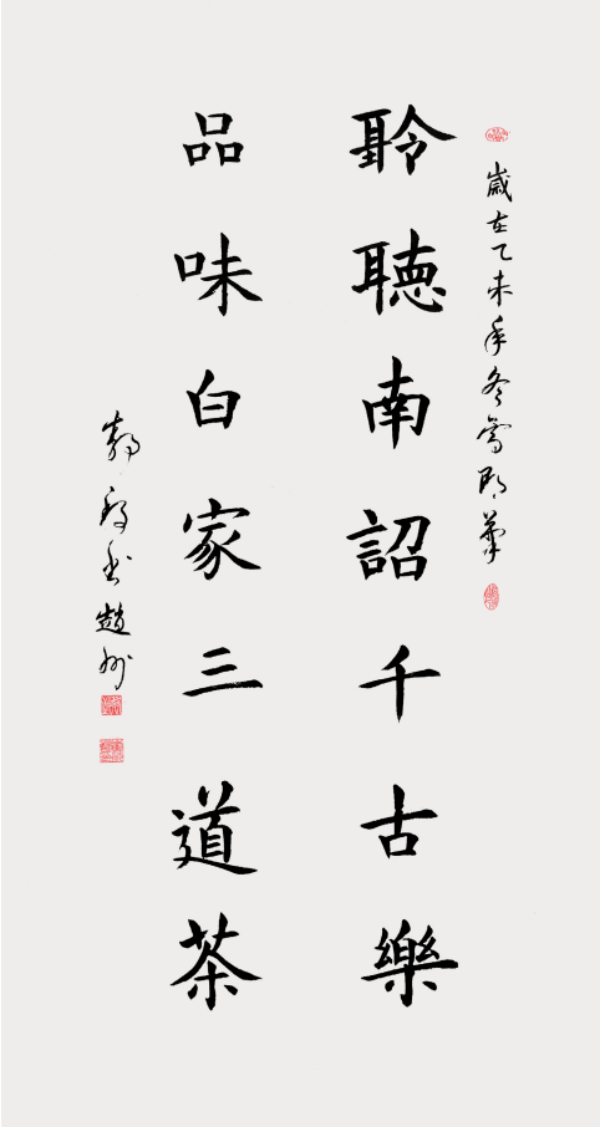 歲在乙未年冬雪
聆聽南詔千古樂
品味白家三道茶
趙州